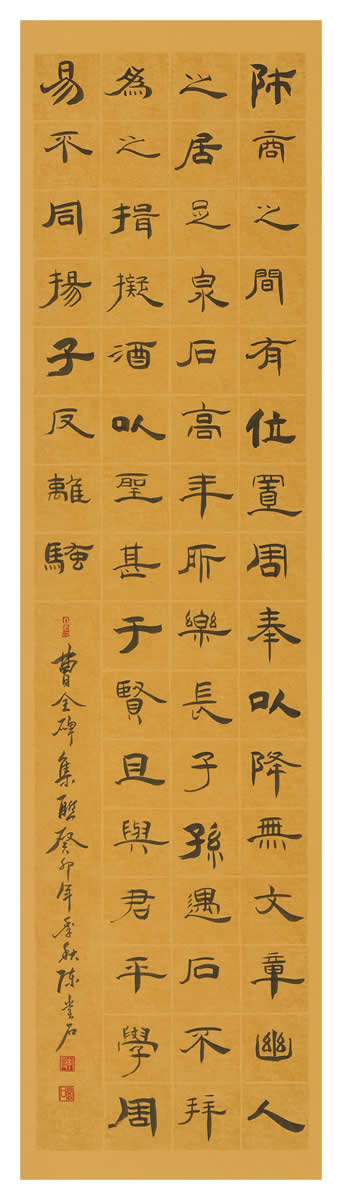 師商之間有位置周秦以降無文章幽人
之居足泉石高年所樂長子孫遇石不拜
為之揖擬酒以聖甚于賢且與君平學周
易不同揚子反離騷
曹全碑集聯癸卯年季秋陳石